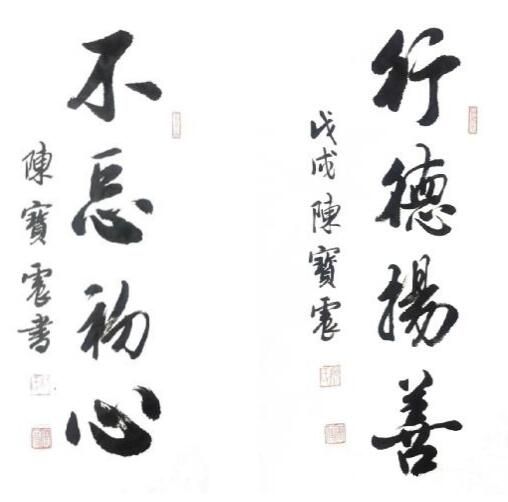 行德揚善
戊戌陳寶震
不忘初心
陳寶震書